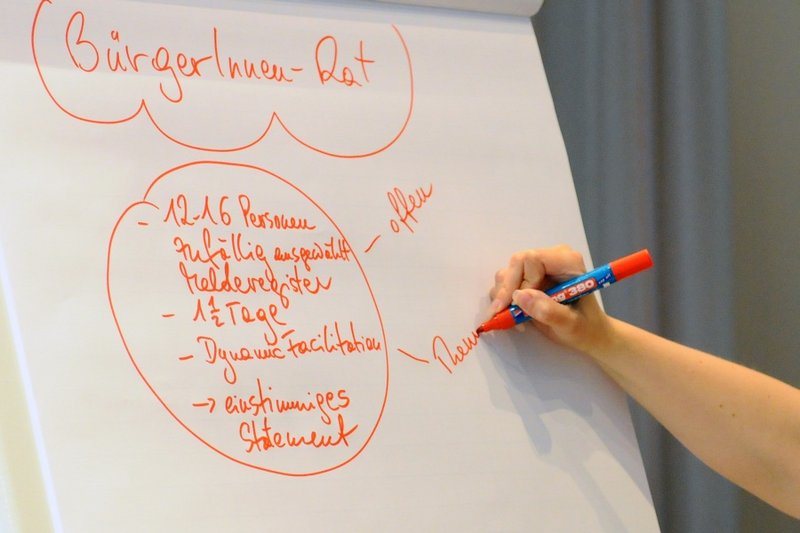 BürgerInnen-Rat
- 12-16 Personen
zufällig ausgewählt
Melderegister
- 1 1/2 Tage
- Dynamic Facilitation
-> einstimmiges
Statement
offen
Them
380